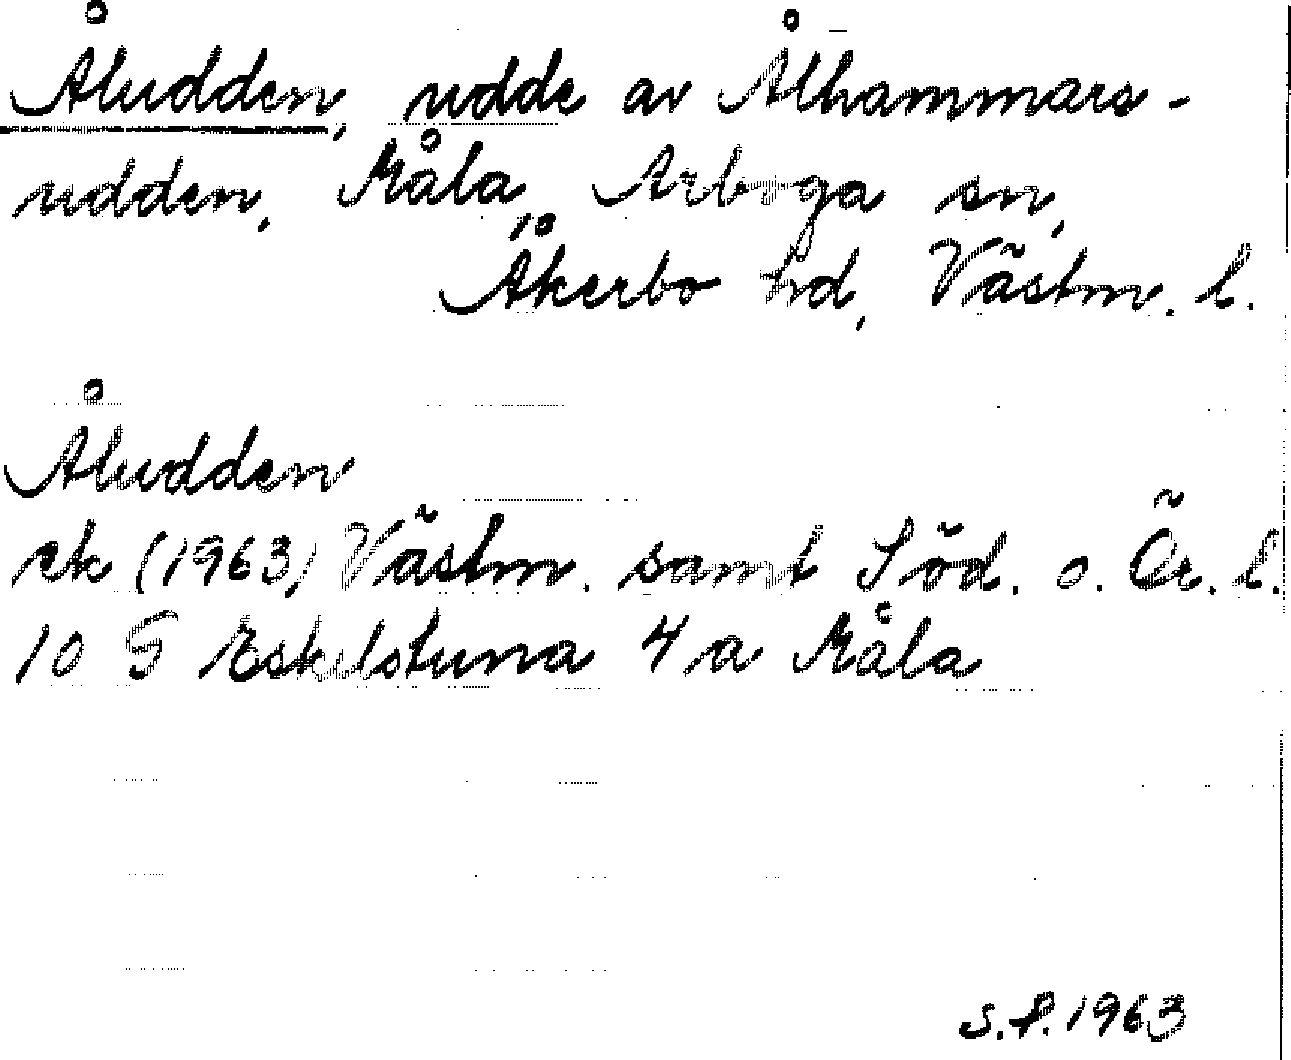 Åludden, udde av Ålhammars-
udden, Måla, Arboga sn,
Åkerbo hd, Västm. l.
Åludden
ek (1963) Västm. samt Söd. o. Ör. l.
10 G Eskilstuna 4 a Måla
S.P. 1963